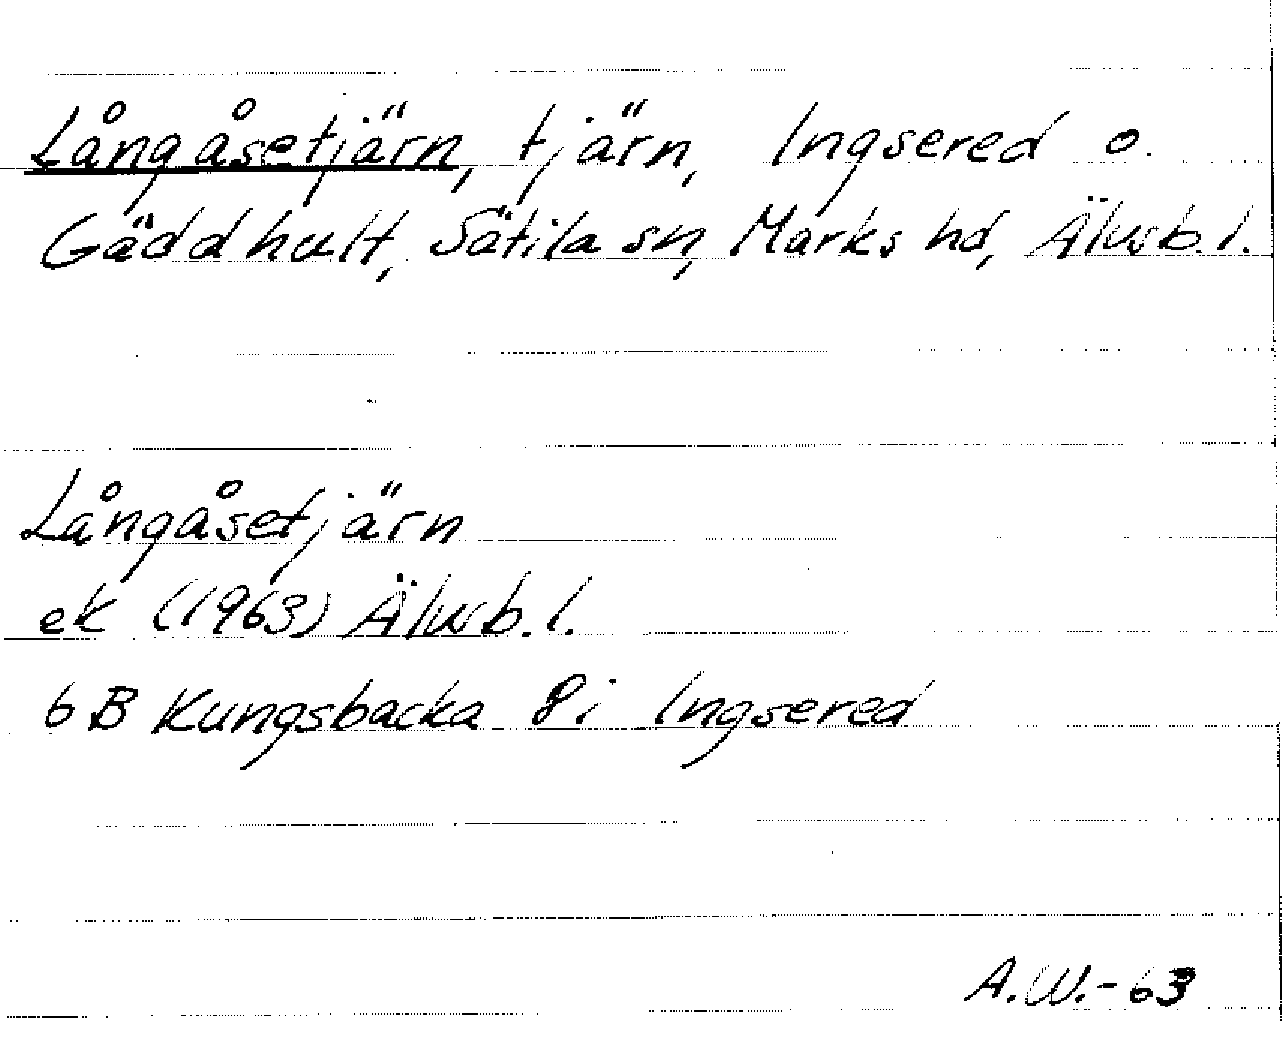 Långåsetjärn, tjärn, Ingsered o.
Gäddhult, Sätila sn, Marks hd, Älvsb. l.
Långåsetjärn
ek (1963) Älvsb. l.
6 B Kungsbacka 8 i Ingsered
A.W.-63